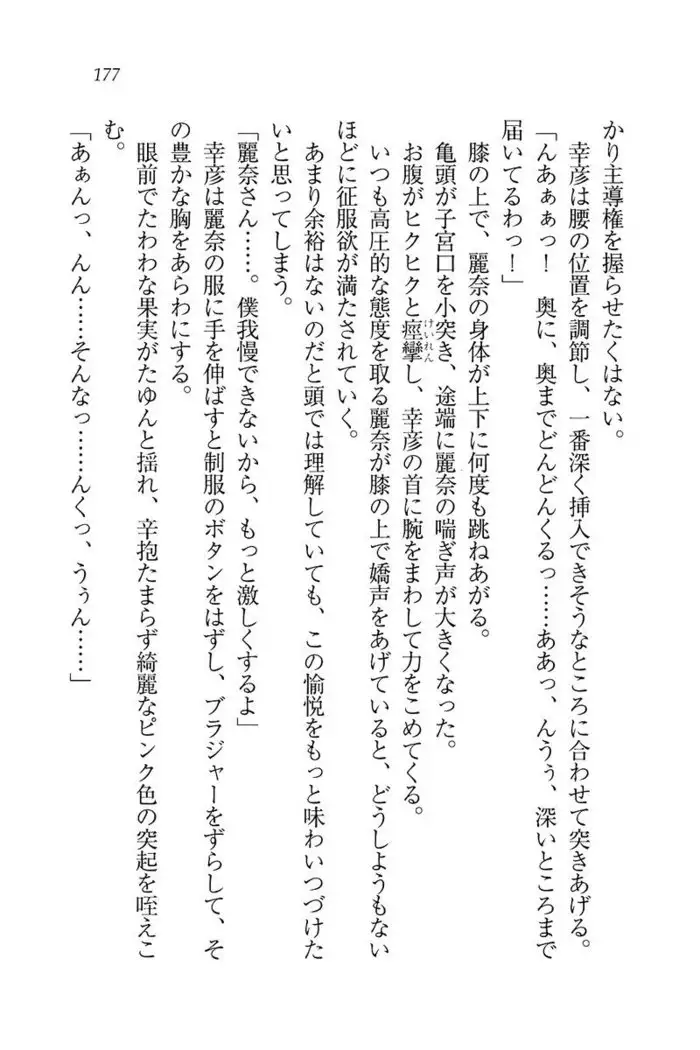 177
かり主導権を握らせたくはない。
幸彦は腰の位置を調節し、一番深く挿入できそうなところに合わせて突きあげる。
「んあぁぁっ！　奥に、奥までどんどんくるっ……ああっ、んうぅ、深いところまで
届いてるわっ！」
膝の上で、麗奈の身体が上下に何度も跳ねあがる。
亀頭が子宮口を小突き、途端に麗奈の喘ぎ声が大きくなった。
お腹がヒクヒクと痙攣し、幸彦の首に腕をまわして力をこめてくる。
けいれん
いつも高圧的な態度を取る麗奈が膝の上で嬌声をあげていると、どうしようもない
ほどに征服欲が満たされていく。
あまり余裕はないのだと頭では理解していても、この愉悦をもっと味わいつづけた
いと思ってしまう。
「麗奈さん……。僕我慢できないから、もっと激しくするよ」
幸彦は麗奈の服に手を伸ばすと制服のボタンをはずし、ブラジャーをずらして、そ
の豊かな胸をあらわにする。
眼前でたわわな果実がたゆんと揺れ、辛抱たまらず綺麗なピンク色の突起を咥えこ
む。
「あぁんっ、んん……そんなっ……んくっ、うぅん……」